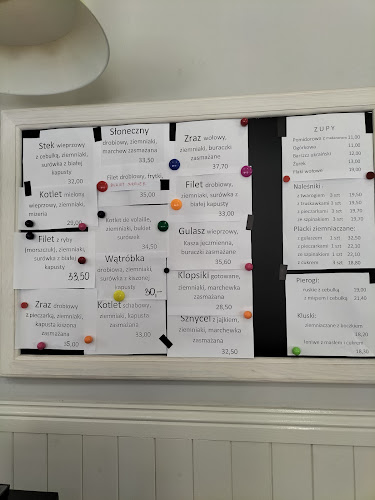 Stek wieprzowy
z cebulką, ziemniaki,
surówka z białej
kapusty
32,00
Kotlet mielony
wieprzowy, ziemniaki,
mizeria
29,00
Filet z ryby
(morszczuk), ziemniaki,
surówka z białej
kapusty
33,50
Zraz drobiowy
z pieczarką, ziemniaki,
kapusta kiszona
zasmażana
35,00
Słoneczny
drobiowy, ziemniaki,
marchew zasmażana
33,50
Filet drobiowy, frytki,
35,00
Kotlet de volaille,
ziemniaki, bukiet
surówek
34,50
Wątróbka
drobiowa, ziemniaki
surówka z białej
kapusty
30,-
Kotlet schabowy,
ziemniaki, kapusta
zasmażana
33,00
Zraz wołowy,
ziemniaki, buraczki
zasmażane
37,70
Filet drobiowy,
ziemniaki, surówka z
białej kapusty
33,00
Gulasz wieprzowy,
Kasza jęczmienna,
buraczki zasmażane
35,60
Klopsiki gotowane,
ziemniaki, marchewka
zasmażana
28,50
Sznycel z jajkiem,
ziemniaki, marchewka
zasmażana
32,50
ZUPY
Pomidorowa z makaronem 11,00
Ogórkowa 11,00
Barszcz ukraiński 12,50
Żurek 13,00
Flaki wołowe 19,00
Naleśniki
z twarogiem 2 szt 19,50
z truskawkami 2 szt 19,50
z pieczarkami 2 szt 19,70
ze szpinakiem 2 szt 19,70
Placki ziemniaczane:
z gulaszem 1 szt 32,90
z pieczarkami 2 szt 22,10
ze szpinakiem 2 szt 22,10
z cukrem 3 szt 18,80
Pierogi:
ruskie z cebulką 19,00
z mięsem i cebulką 21,40
Kluski:
ziemniaczane z boczkiem
18,20
leniwe z masłem i cukrem
18,30